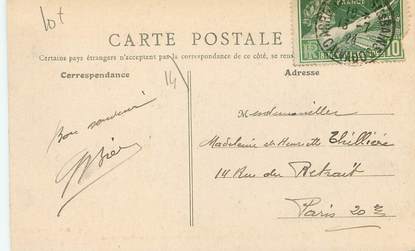 lot
FRANCE
CALVADOS
10
CARTE POSTALE
Certains pays étrangers n'acceptent pas la correspondance de ce côté, se
14
Correspondance
Adresse
Bon souvenir
Mesdemoiselles
Madeleine et Henriette Thillière
14 Rue du Retrait
Paris 20e